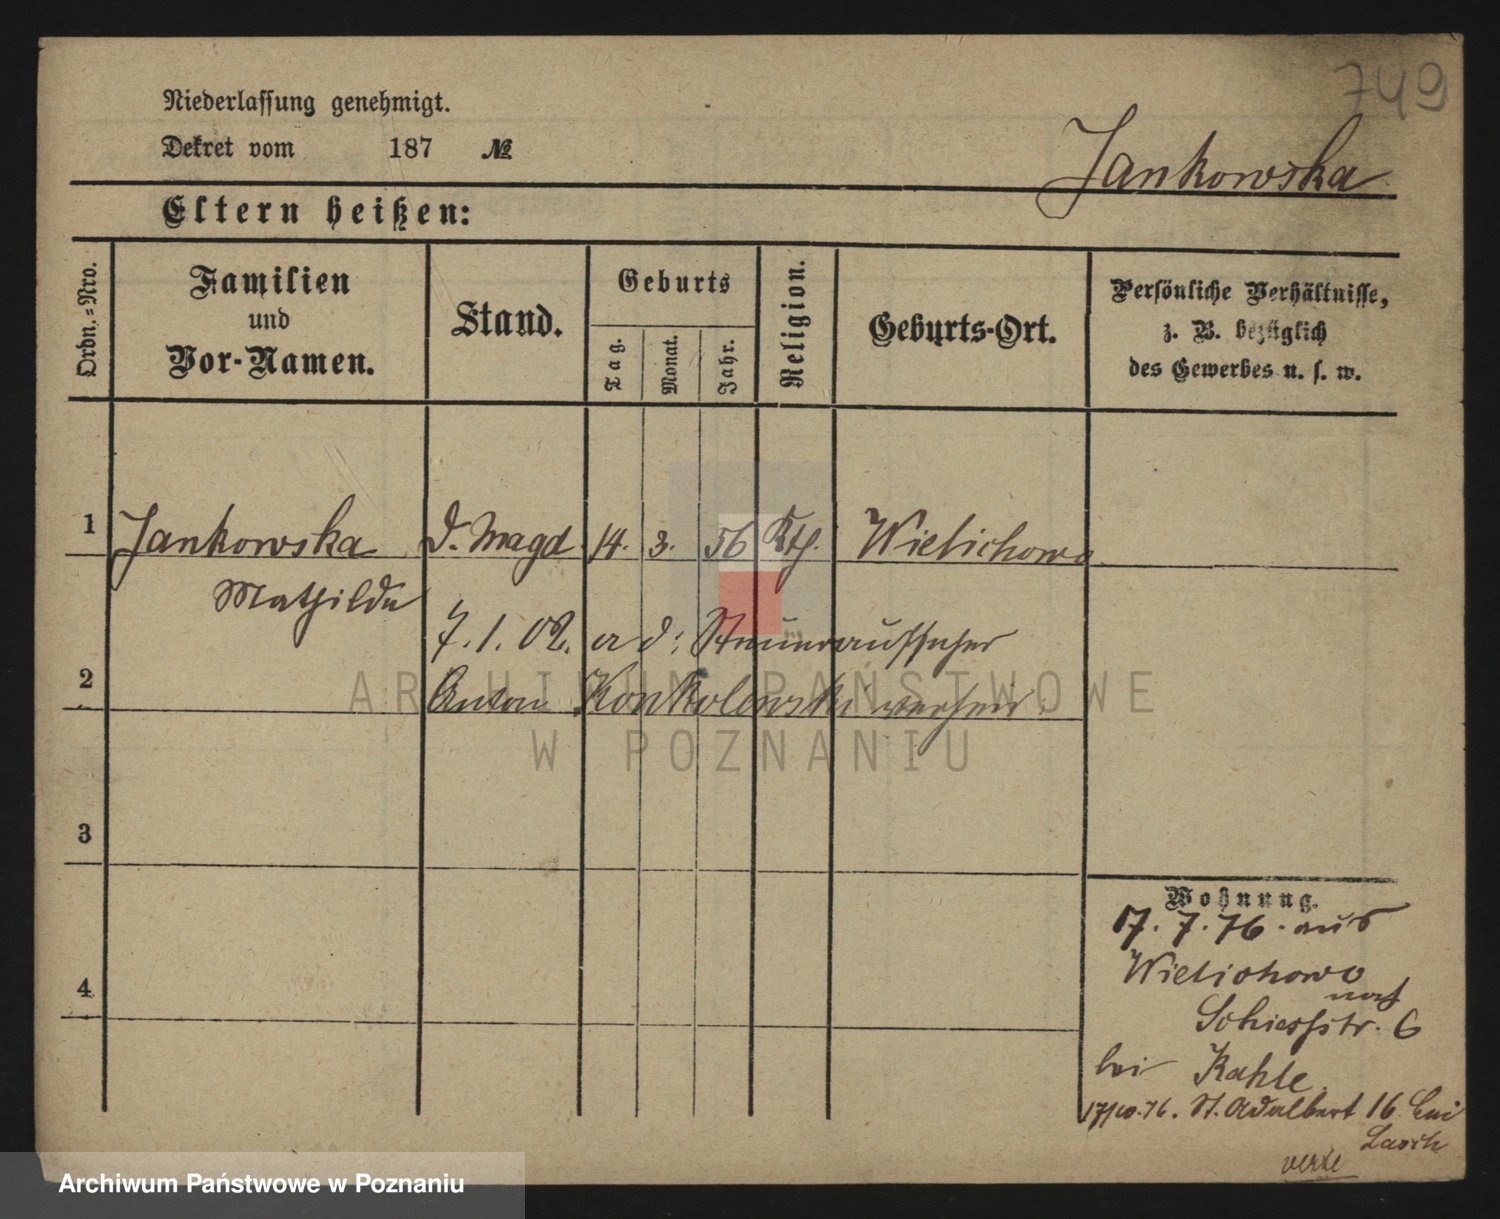 749
Niederlassung genehmigt.
Dekret vom 187 №
Jankowska
Eltern heißen:
Ordn.=Nro.
Familien
und
Vor-Namen.
Stand.
Geburts
Tag.
Monat.
Jahr.
Religion.
Geburts-Ort.
Persönliche Verhältnisse,
z. B. bezüglich
des Gewerbes u. s. w.
1 Jankowska d. Magd 14. 3. 56 Kth. Wielichowo
Mathilde
7. 1. 02. a d: Steueraufseher
2 Anton Konkolewski verheir.
3
4
Wohnung.
17. 7. 76. aus
Wielichowo
nach
Schiesstr. 6
bei Kahle.
17/10. 76. St. Adalbert 16 bei
verte
ARCHIWUM PAŃSTWOWE
W POZNANIU
Archiwum Państwowe w Poznaniu